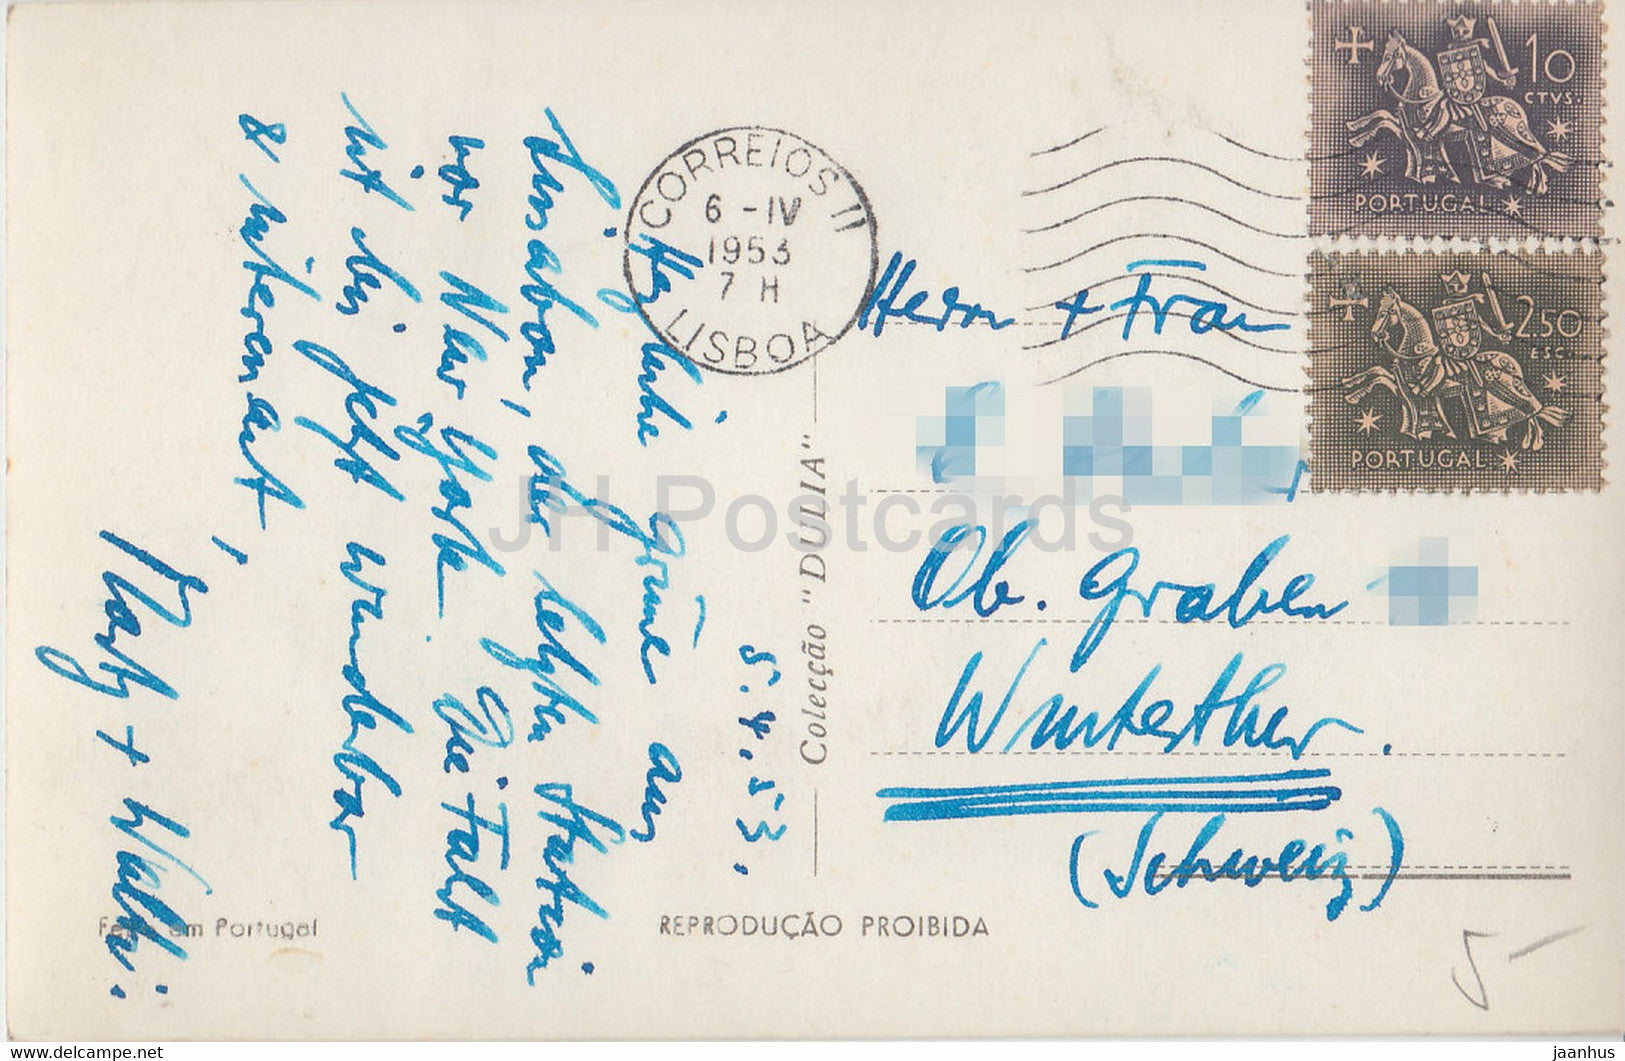 5.4.53.
Herzliche Grüsse aus
Lissabon, der letzten Station
vor New York. Die Fahrt
ist bis jetzt wunderbar
& interessant,
+ Walti.
CORREIOS II
6 - IV
1953
7 H
LISBOA
10
CTVS.
PORTUGAL
2.50
ESC.
PORTUGAL
Herrn + Frau
Ob. Graben
Winterthur.
(Schweiz)
Colecção "DULIA"
em Portugal
REPRODUÇÃO PROIBIDA
5-
JH Postcards
www.delcampe.net
jaanhus